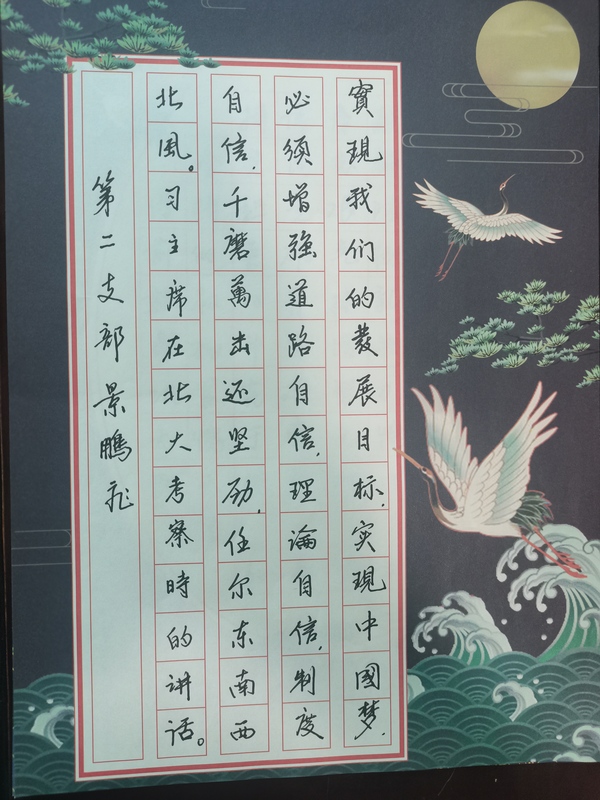 實現我们的發展目标,实現中國梦,
必须增强道路自信,理論自信,制度
自信,千磨萬击还坚劲,任尔东南西
北風。习主席在北大考察時的讲话。
第二支部景鵬飛